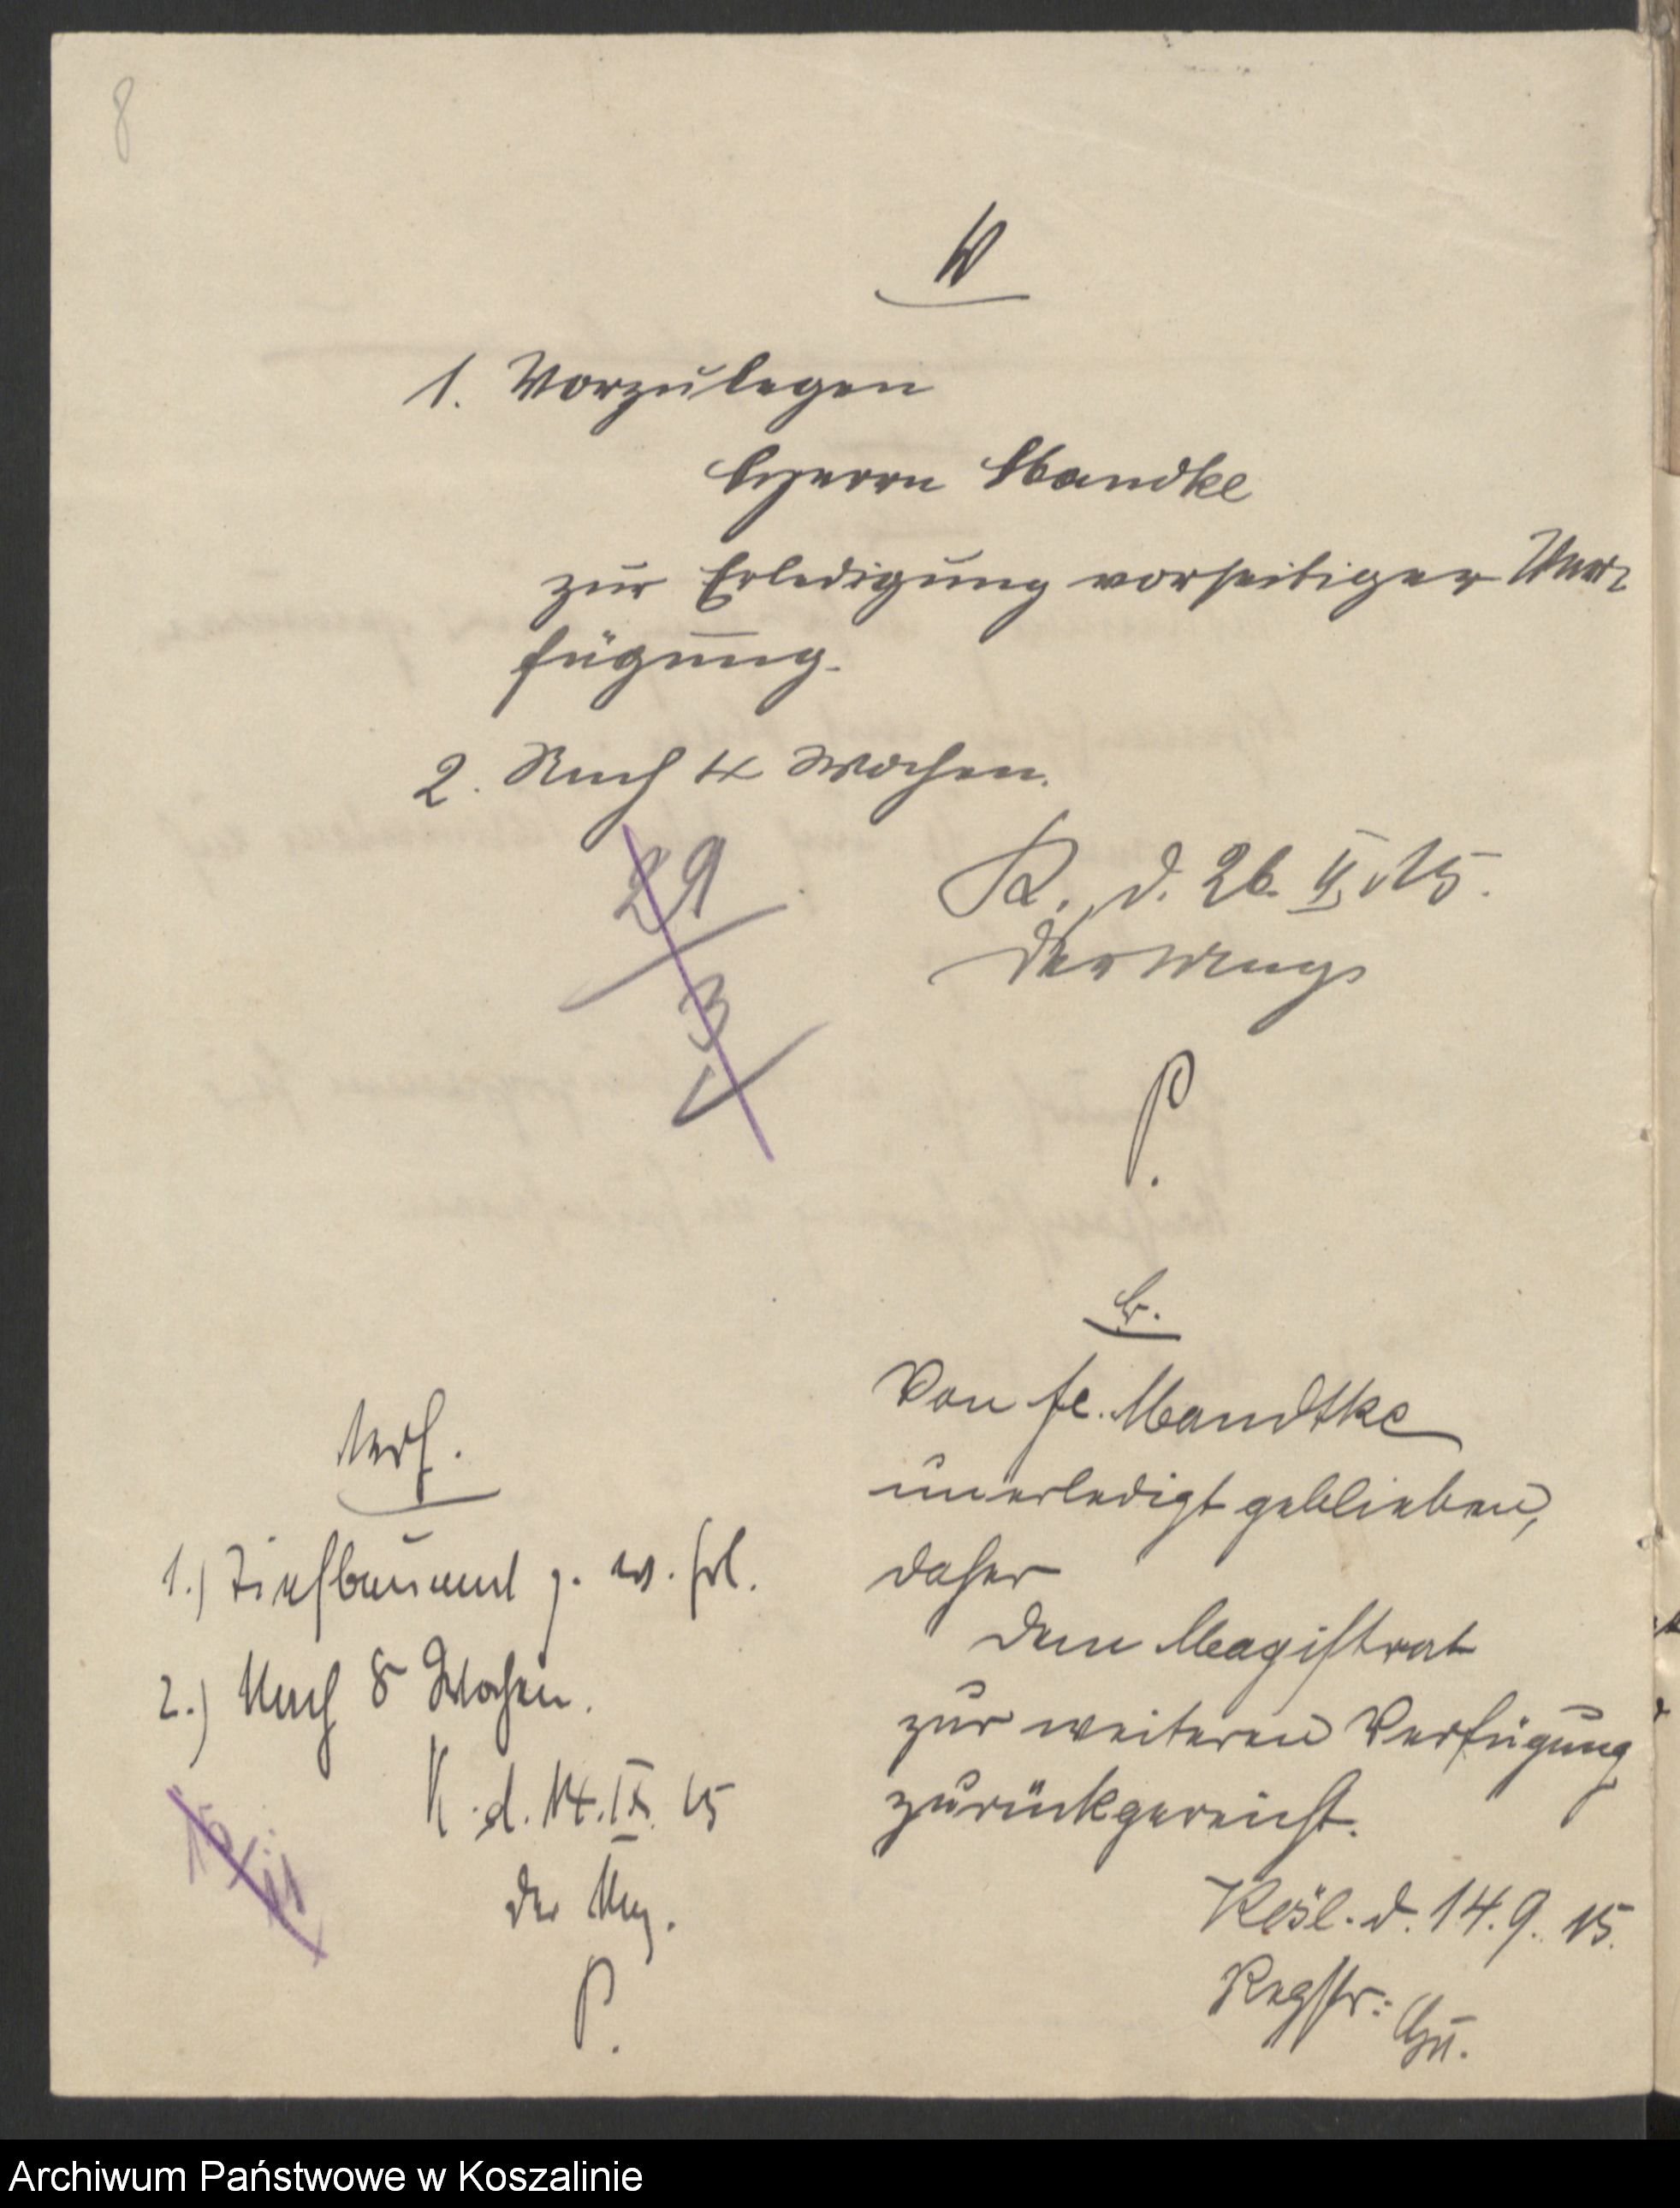 8
V
1. Vorzulegen
Herrn Mandke
zur Erledigung vorseitiger Ver-
fügung.
2. Nach 4 Wochen.
29
3
K. d. 26. II. 15.
Der Mag
P.
Von Mandtke
unerledigt geblieben,
daher
dem Magistrat
zur weiteren Verfügung
zurückgereicht.
Kösl. d. 14. 9. 15.
Regstr:
Verf.
1.) Tiefbauamt z. w. Erl.
2.) Nach 8 Wochen.
K. d. 14. IX. 15
Der Mag.
P.
15
11
Archiwum Państwowe w Koszalinie